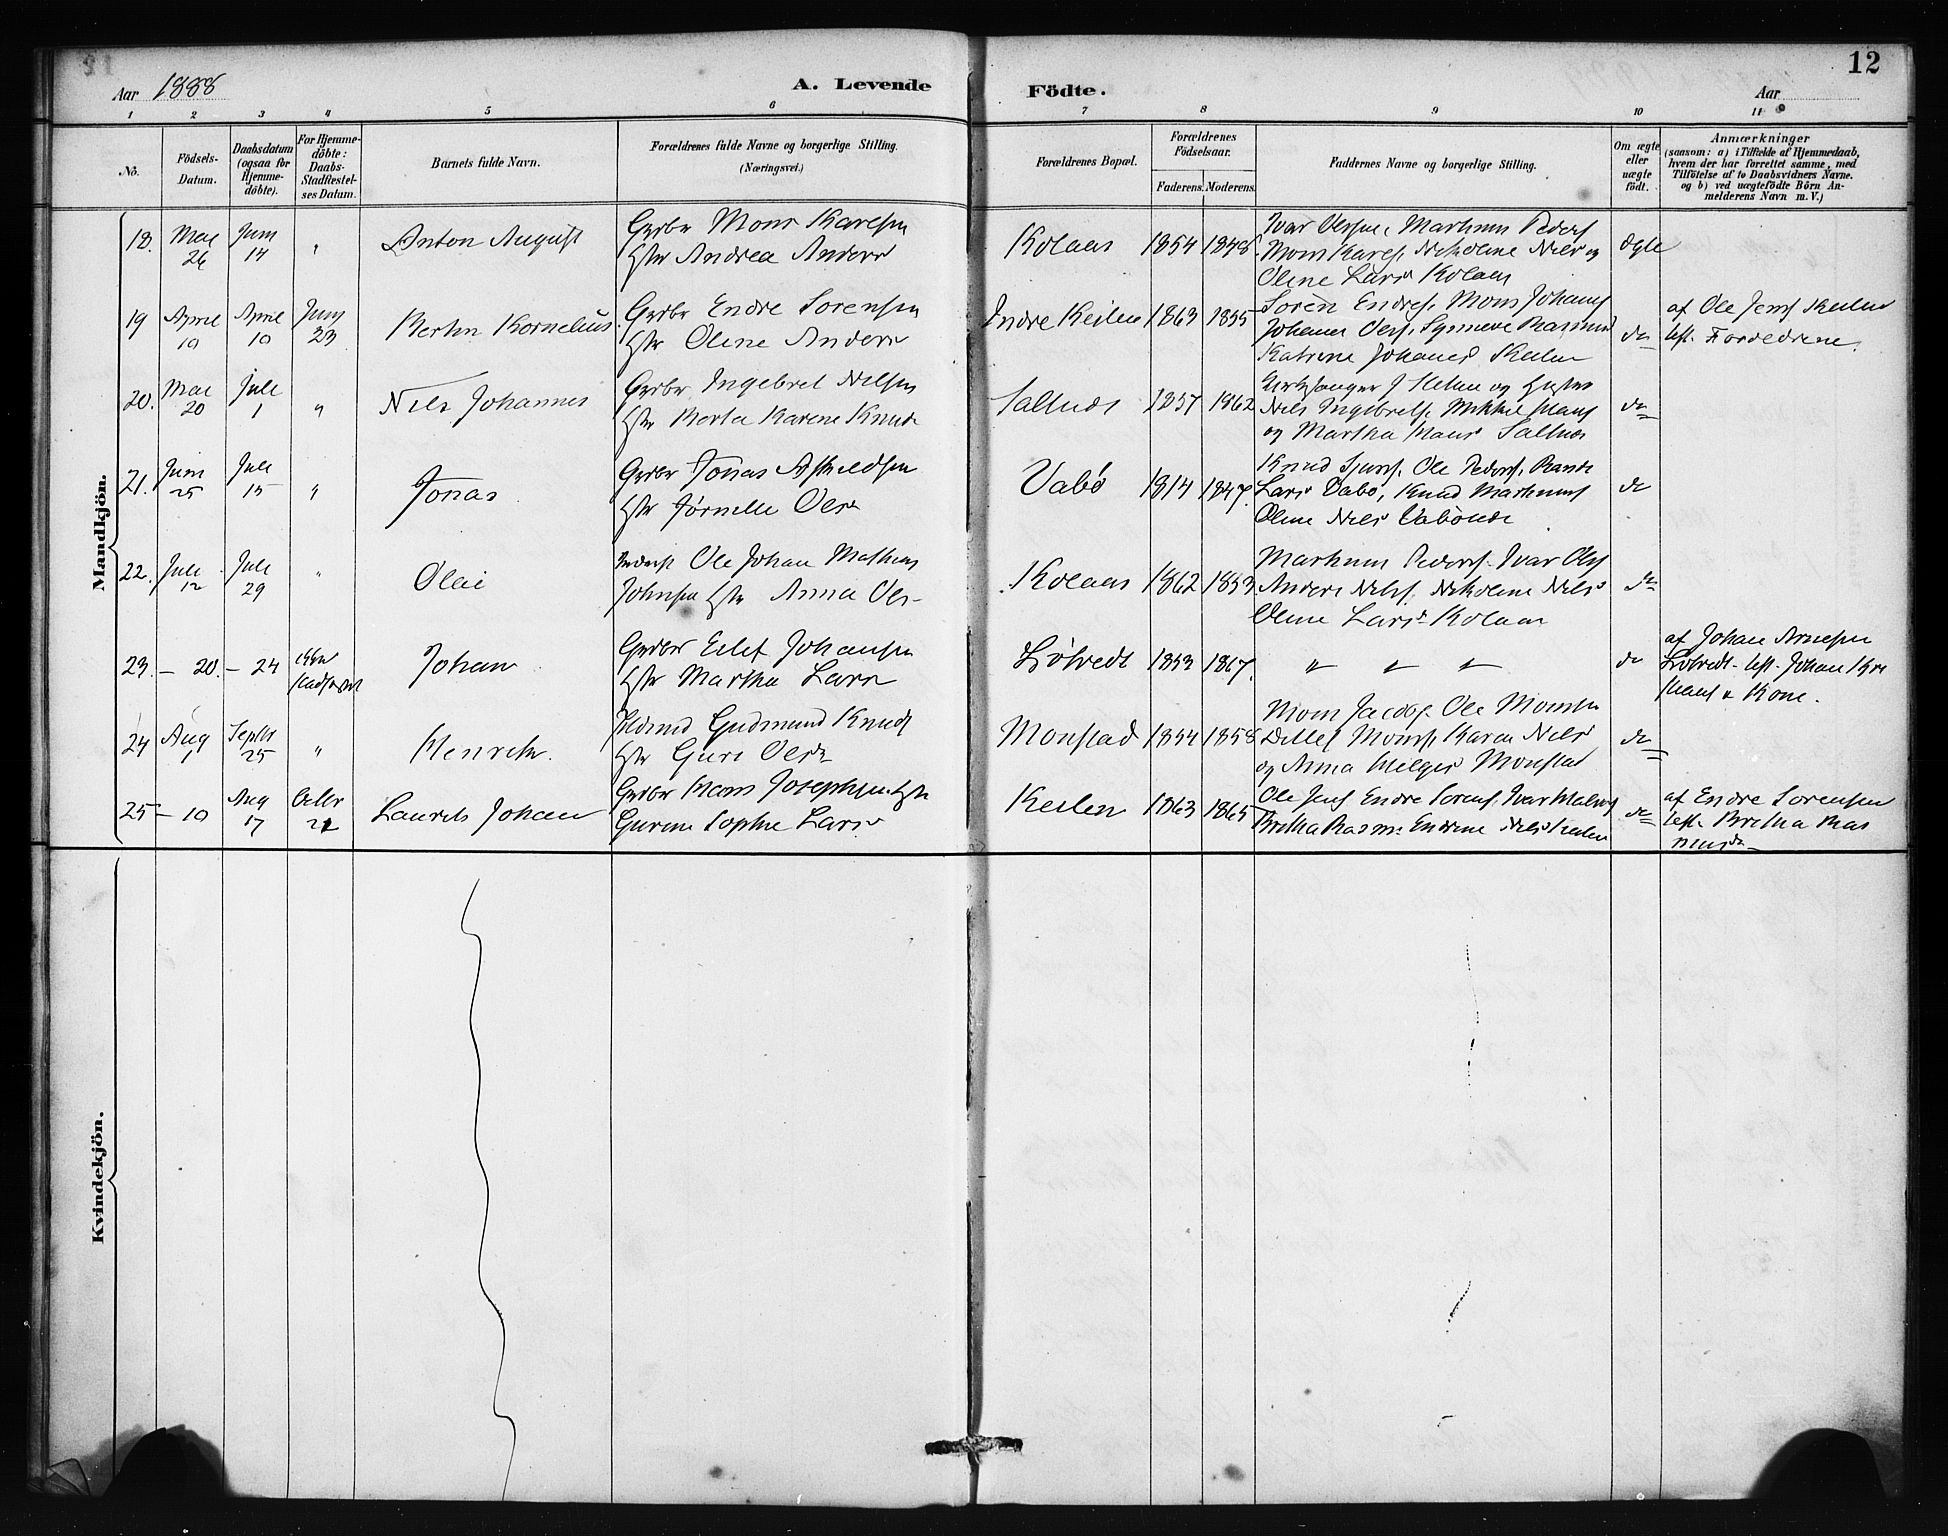 12
Aar 1888
A. Levende
Födte.
Aar
1 2 3 4 5 6 7 8 9 10 11
No.
Födsels-
Datum.
Daabsdatum
(ogsaa for
Hjemme-
döbte).
For Hjemme-
döbte:
Daabs-
Stadfæstel-
ses Datum.
Barnets fulde Navn.
Forældrenes fulde Navne og borgerlige Stilling.
(Næringsvei.)
Forældrenes Bopæl.
Forældrenes
Födselsaar.
Faderens. Moderens.
Faddernes Navne og borgerlige Stilling.
Om ægte
eller
uægte
födt.
Anmærkninger
(saasom: a) i Tilfælde af Hjemmedaab,
hvem der har forrettet samme, med
Tilföielse af to Daabsvidners Navne.
og b) ved uægtefödte Börn An-
melderens Navn m. V.)
Mandkjön.
18. Mai 26 Juni 14 " Anton August
Grdbr Mons Karlsen
Hstr Andrea Anders
Kolaas 1854 1848
Ivar Olsen, Markus Peders
Mons Karls, Nikoline Niels og
Oline Lars Kolaas
ægte
19 April 10 April 10 Juni 23 Bertin Kornelius
Grdbr Endre Sorensen
Hstr Oline Anders
Indre Keilen 1863 1855
Soren Endres, Mons Johans
Johanes Ols, Synneve Rasmus
Katrine Johanes Keilen
do
af Ole Jens Keilen
test. Forældrene.
20. Mai 20 Juli 1 " Niels Johannes
Grdbr Ingebret Nilsen
Hstr Marta Karene Knuds
Saltnæs 1857 1862
Kirkesanger J. Helen og Hustru
Niels Ingebrets, Mikkel Hans
og Martha Hans Saltnæs
do
21. Juni 25 Juli 15 " Jonas
Grdbr Jonas Askildsen
Hstr Jørnelle Ols
Vabø 1814 1847.
Knud Sjurs, Ole Peders, Rande
Lars Vabø, Knud Markuns
Oline Niels Vabønæs
do
22. Juli 12 Juli 29 " Olai
Ole Johan Mathias
Johnsen Hstr Anna Ols
Kolaas 1862 1853
Markuns Peders, Ivar Ols
Anders Nils, Nikoline Niels
Oline Lars Kolaas
do
23. - 20. - 24 Johan
Grdbr Eilef Johansen
Hstr Martha Lars
Ljøtvedt 1853 1867.
" " "
do
af Johan Arnesen
Ljøtvedt - test. Johan
Hans & Kone.
24 Aug 1 Septbr 25 " Henrik.
Gudmund Knuds
Hstr Guri Ols
Monstad 1854 1858
Mons Jacobs, Ole Monsen
Ditlef Mons, Karen Niels
og Anna Helges Monstad
do
25 - 10 Aug 17 Octbr 21 Laurits Johan
Grdbr Hans Josephsen Hstr
Gurine Sophie Lars
Keilen 1863 1865
Ole Jens, Endre Sorens, Ivar
Britha Rasm: Endrine Niels Keilen
do
af Endre Sorensen
test. Britha Ras
musdr
Kvindekjön.